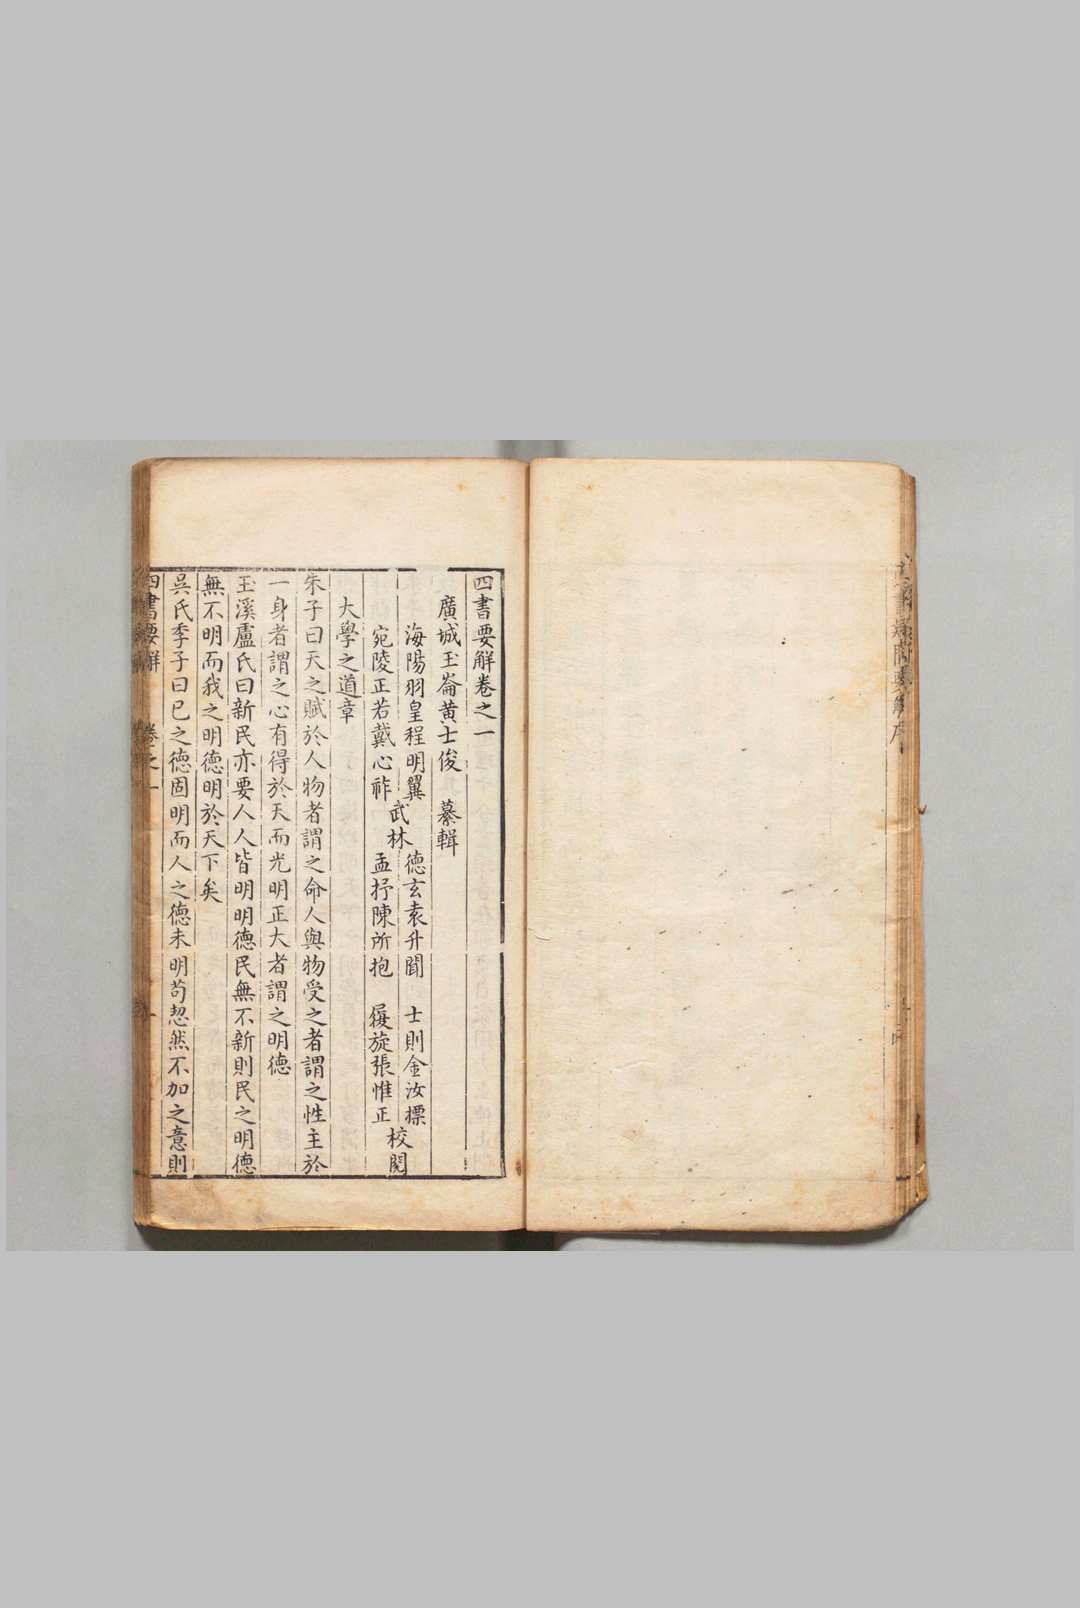 四書要解卷之一
廣城玉崙黃士俊　纂輯
海陽羽皇程明翼　德玄袁升聞　士則金汝標
武林　校閱
宛陵正若戴心祚　孟抒陳所抱　履旋張惟正
大學之道章
朱子曰天之賦於人物者謂之命人與物受之者謂之性主於
一身者謂之心有得於天而光明正大者謂之明德
玉溪盧氏曰新民亦要人人皆明明德民無不新則民之明德
無不明而我之明德明於天下矣
吳氏季子曰已之德固明而人之德未明苟恝然不加之意則
四書要解　卷之一